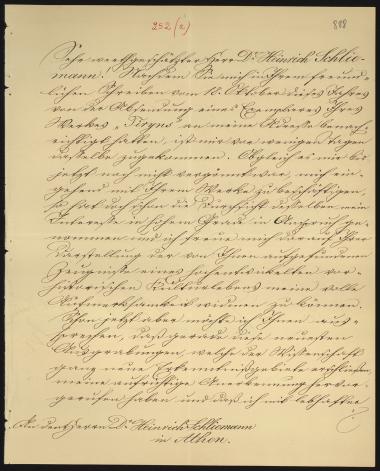 252 (2)
898
Sehr werthgeschätzter Herr Dr. Heinrich Schlie-
mann! Nachdem Sie mich in Ihrem freund-
lichen Schreiben vom 18. Oktober dieses Jahres
von der Absendung eines Exemplares Ihres
Werkes „Tiryns“ an meine Adresse benach-
richtigt hatten, ist mir vor wenigen Tagen
dasselbe zugekommen. Obgleich es mir bis
jetzt noch nicht vergönnt war, mich ein-
gehend mit Ihrem Werke zu beschäftigen,
so hat doch schon die Durchsicht desselben mein
Interesse in hohem Grade in Anspruch ge-
nommen und ich freue mich darauf Ihrer
Darstellung der von Ihnen aufgefundenen
Zeugnisse eines hochentwickelten vor-
historischen Kulturlebens meine volle
Aufmerksamkeit widmen zu können.
Schon jetzt aber möchte ich Ihnen aus-
sprechen, daß gerade diese neuesten
Ausgrabungen, welche der Wissenschaft
ganz neue Erkenntnißgebiete erschlossen,
meine aufrichtige Anerkennung hervor-
gerufen haben und daß ich mit lebhafter
An den Herrn Dr. Heinrich Schliemann
in Athen.